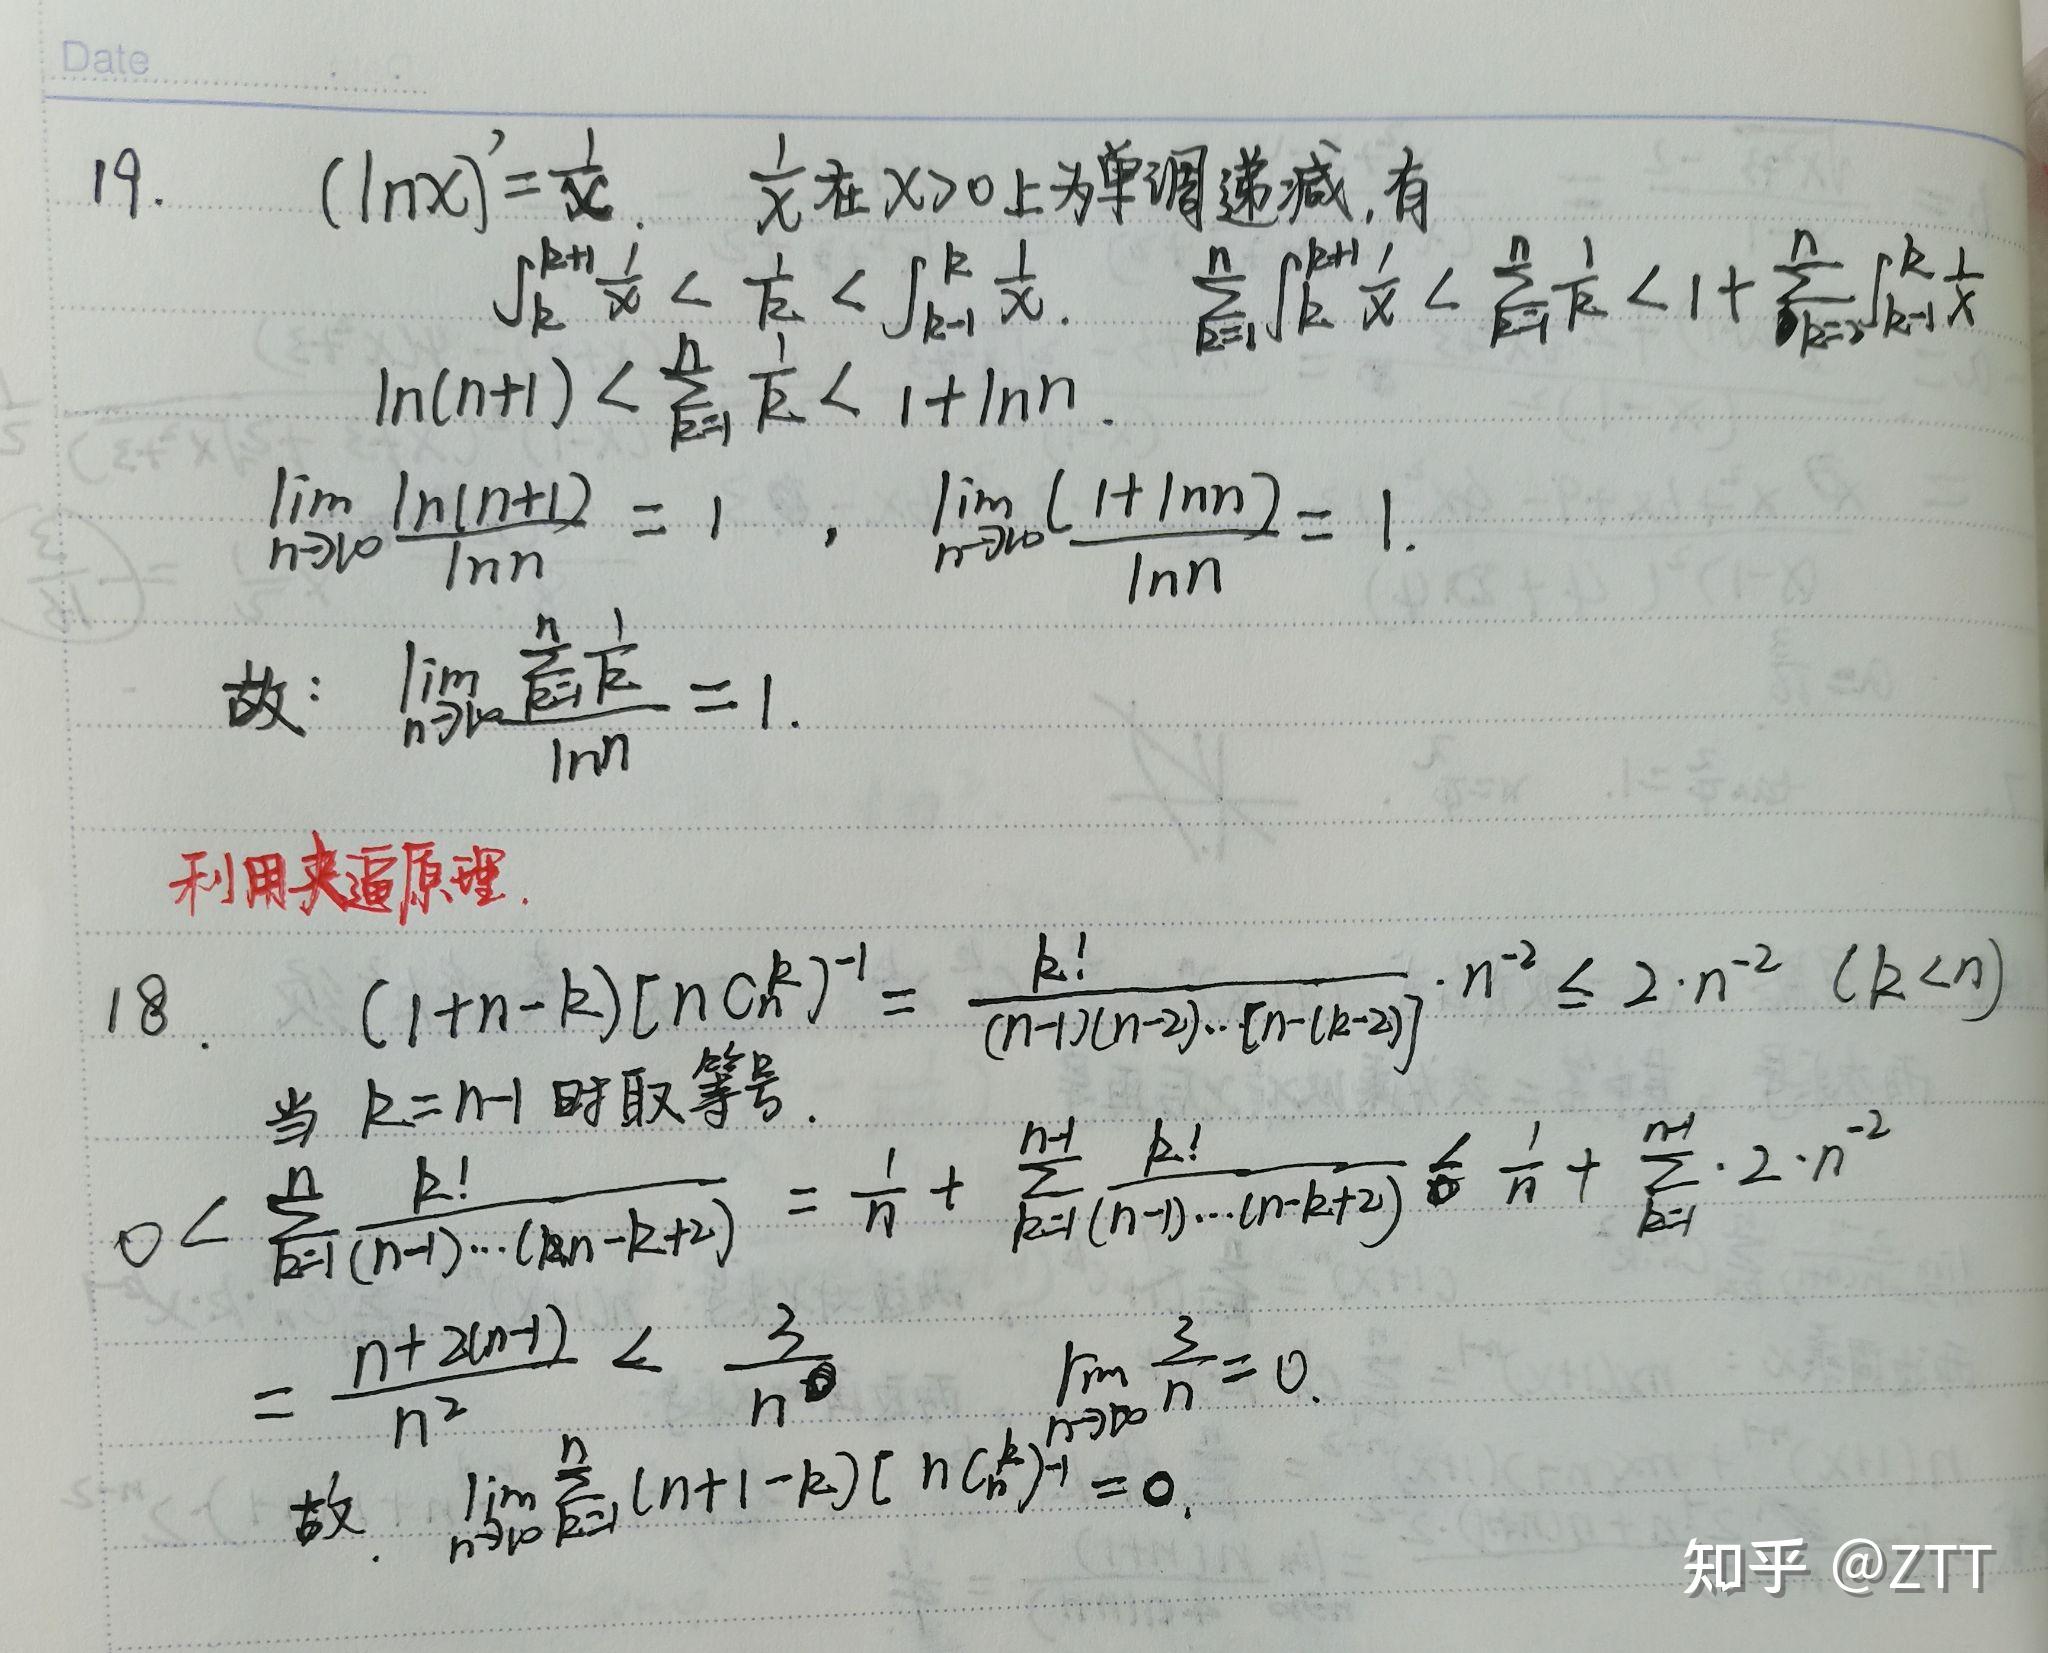 Date
19. (lnx)' = 1/x. 1/x 在 x>0 上为单调递减,有
∫_k^{k+1} 1/x < 1/k < ∫_{k-1}^k 1/x. ∑_{k=1}^n ∫_k^{k+1} 1/x < ∑_{k=1}^n 1/k < 1 + ∑_{k=2}^n ∫_{k-1}^k 1/x
ln(n+1) < ∑_{k=1}^n 1/k < 1+lnn.
lim_{n→∞} ln(n+1)/lnn = 1 , lim_{n→∞} (1+lnn)/lnn = 1.
故: lim_{n→∞} (∑_{k=1}^n 1/k)/lnn = 1.
利用夹逼原理.
18. (1+n-k)[nC_n^k)^{-1} = k!/((n-1)(n-2)…[n-(k-2)]) · n^{-2} ≤ 2·n^{-2} (k<n)
当 k=n-1 时取等号.
0 < ∑_{k=1}^n k!/((n-1)…(n-k+2)) = 1/n + ∑_{k=1}^{n-1} k!/((n-1)…(n-k+2)) ≤ 1/n + ∑_{k=1}^{n-1} · 2·n^{-2}
= (n+2(n-1))/n² < 3/n lim_{n→∞} 3/n = 0.
故. lim_{n→∞} ∑_{k=1}^n (n+1-k)[nC_n^k)^{-1} = 0.
知乎 @ZTT